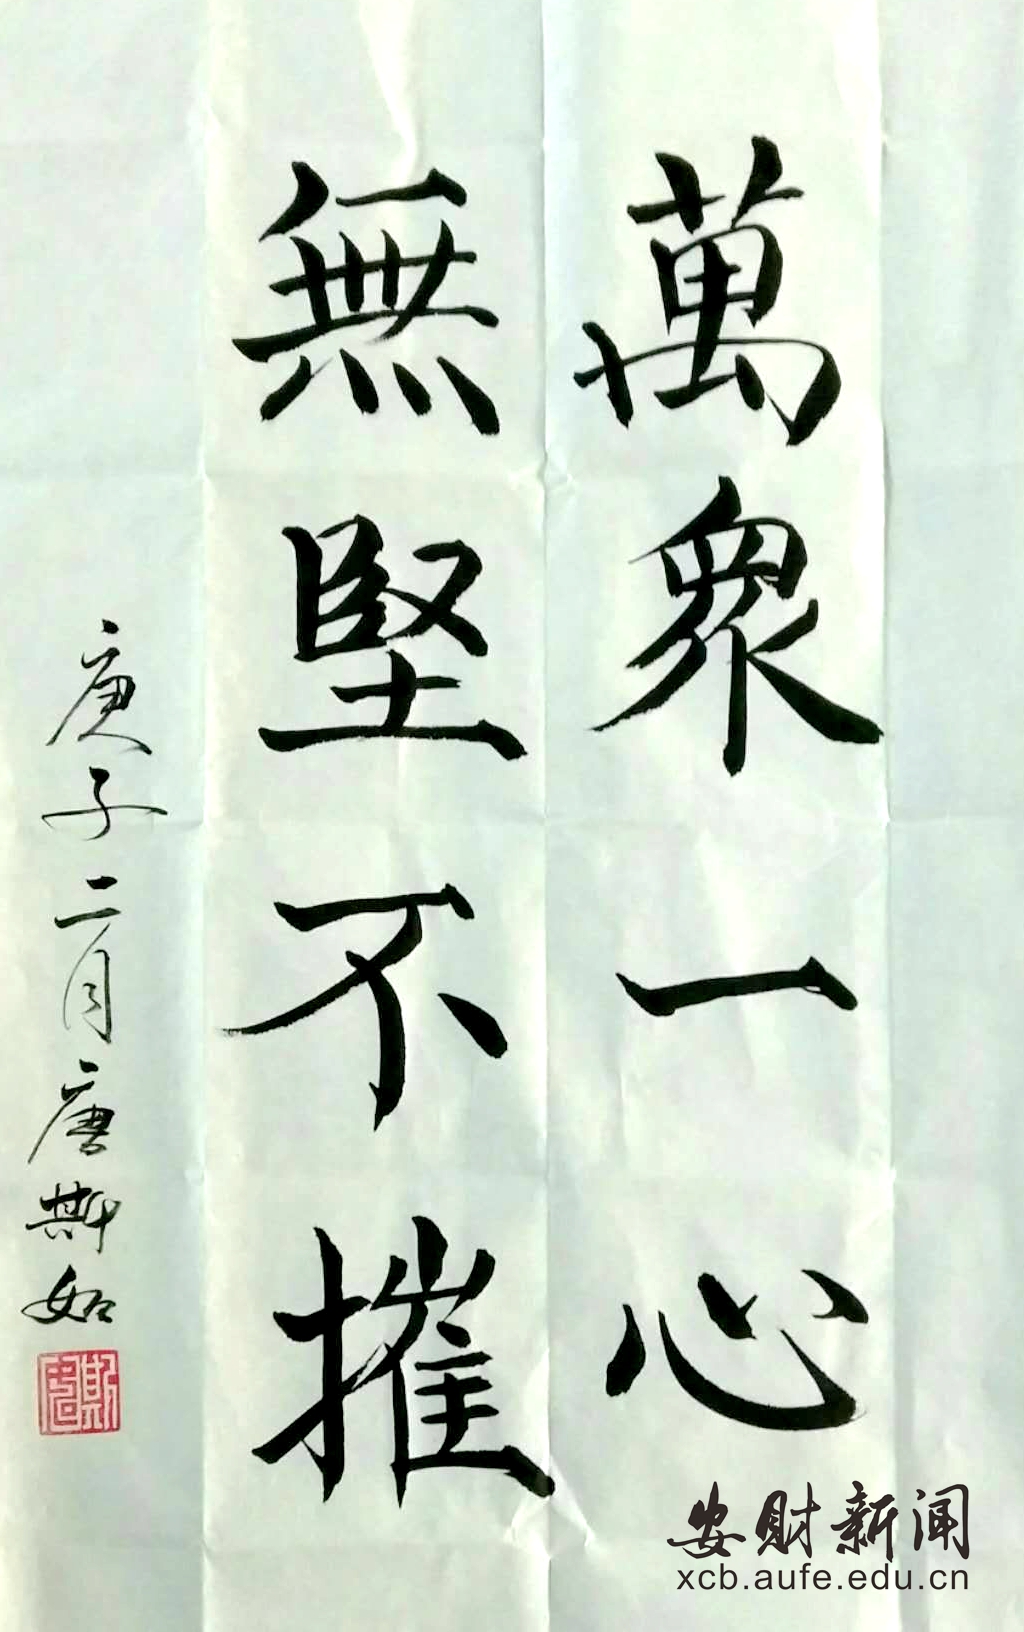 萬眾一心
無堅不摧
庚子二月唐斯如
安财新闻
xcb.aufe.edu.cn